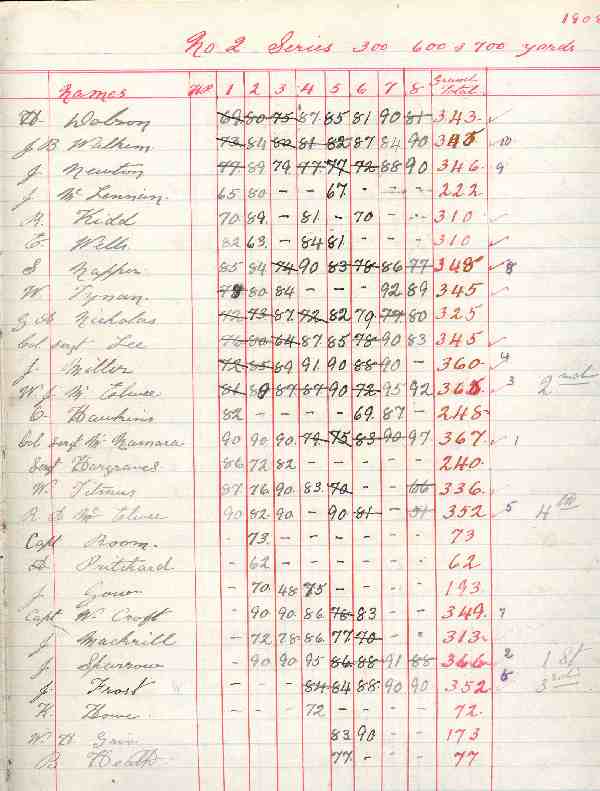 1908
No 2 Series 300 600 & 700 yards
Names HP 1 2 3 4 5 6 7 8 Grand Total
Dobson 69 80 75 87 85 81 90 81 343
J B Wilkin 73 84 82 81 82 87 84 90 345 10
J Newton 77 89 79 77 77 72 88 90 346 9
J. McLennan 65 80 - - 67 - - - 222
A. Kidd 70 89 - 81 - 70 - - 310
E. Wells 82 63 - 84 81 - - - 310
S Napper 85 84 74 90 83 78 86 77 348 8
W. Tynan 80 84 - - - 92 89 345
G A Nicholas 72 73 87 72 82 79 77 80 325
Col Sergt Lee 76 80 64 87 85 78 90 83 345
J. Miller 72 85 89 91 90 88 90 - 360 4
W J Mc Elwee 81 89 87 87 90 72 95 92 3 2nd
Hawkins 82 - - - - 69 87 - 248
Col Sergt McNamara 90 90 90 79 75 83 90 97 367 1
Sergt Hargraves 86 72 82 - - - - - 240
W. Titmus 87 76 90 83 70 - - 66 336
R A Mc Elwee 90 82 90 - 90 81 - 51 352 5 4th
Capt Room - 73 - - - - - - 73
Pritchard - 62 - - - - - - 62
J. - 70 48 75 - - - - 193
Capt W. Croft - 90 90 86 78 83 - - 349 7
J. Mackrill - 72 78 86 77 70 - - 313
J. Sharrow - 90 90 95 86 88 91 88 366 2 1st
J. Frost - - - 84 84 88 90 90 352 3rd
Howe - - - 72 - - - - 72
W. H 83 90 - - 173
B Heath 77 - - - 77